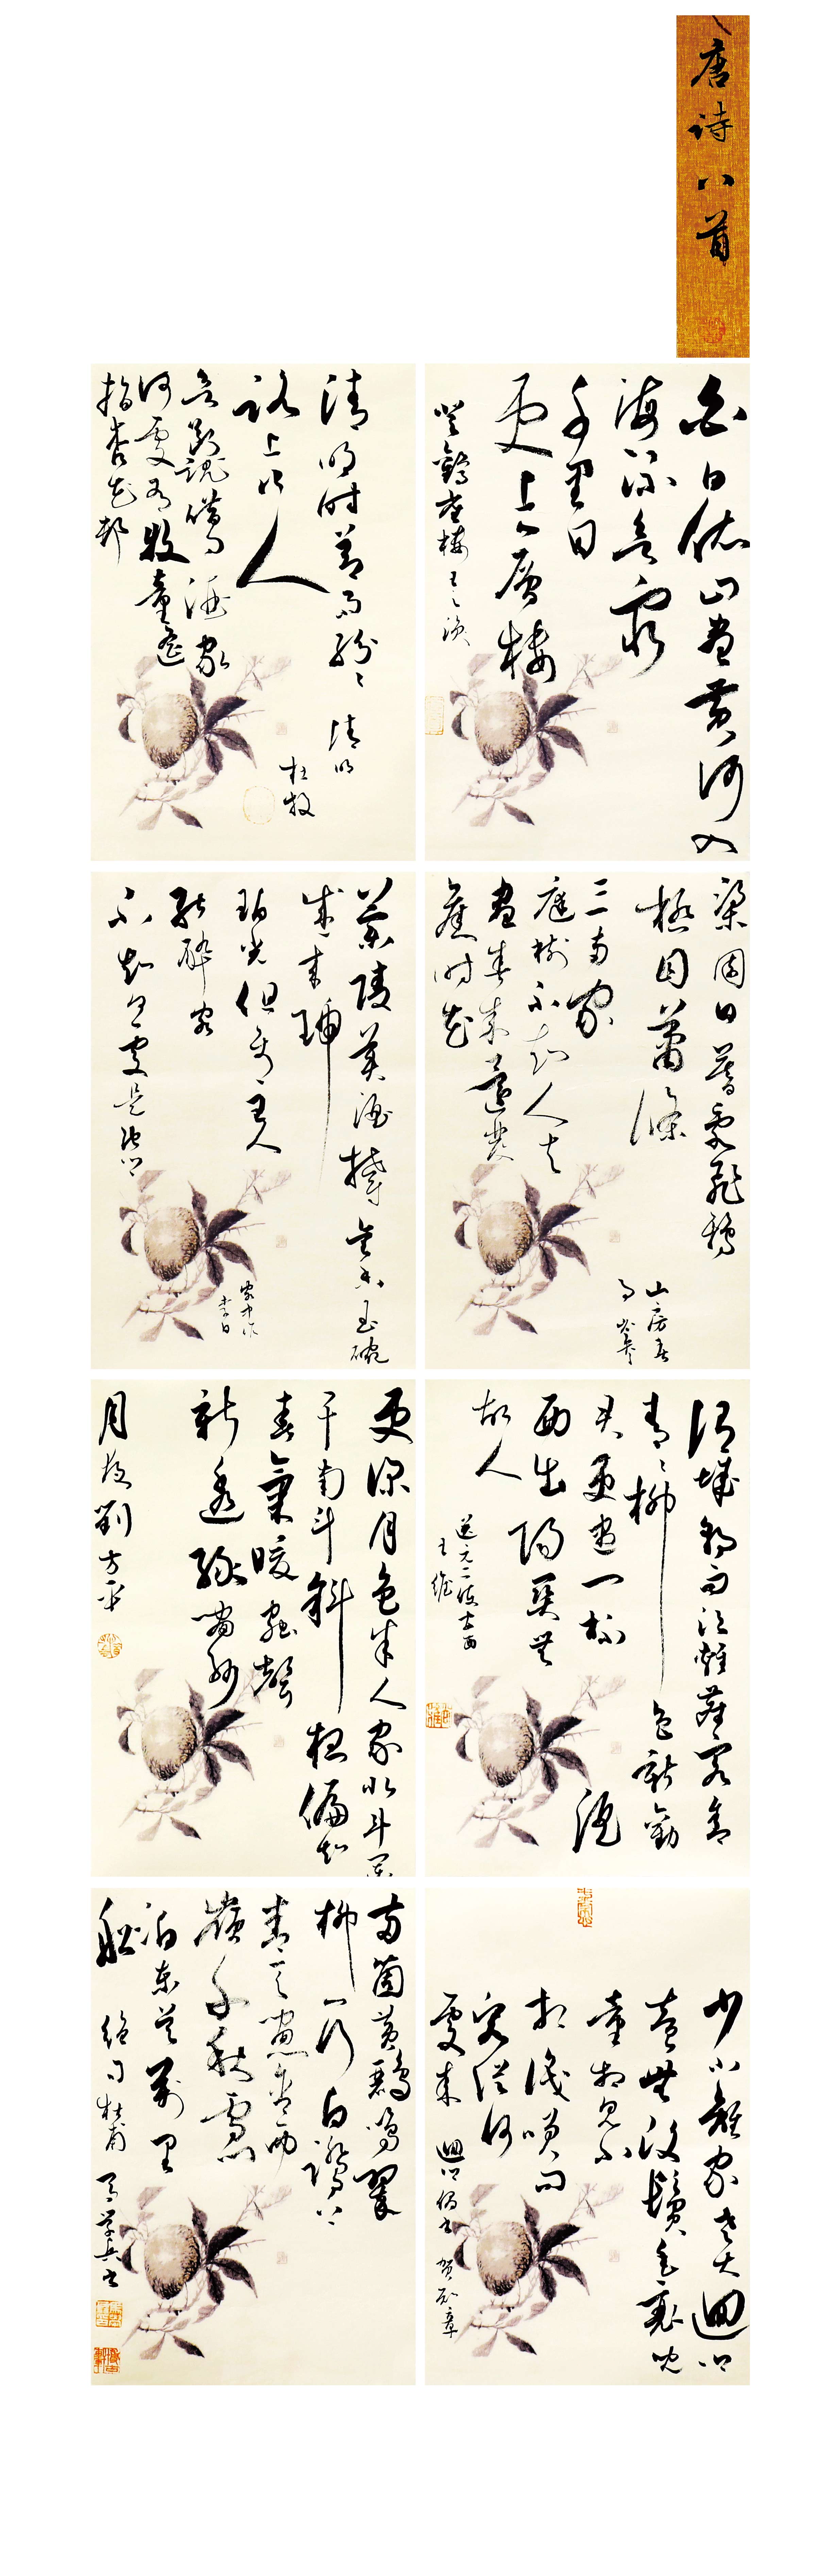 唐诗八首
白日依山盡黄河入
海流欲窮
千里日
更上一層樓
登鸛雀樓王之渙
清明時節雨紛紛 清明
路上行人
杜牧
欲斷魂借問酒家
何處有牧童遥
指杏花邨
梁園日暮亂飛鴉
極目蕭條
三兩家
庭樹不知人去
盡春來還發
舊時花
山房春
事 岑參
蘭陵美酒鬱金香玉碗
盛来琥
珀光但使主人
能醉客
不知何處是他鄉
客中作
李白
渭城朝雨浥輕塵客舍
青青柳色新勸
君更盡一杯酒
西出陽關無
故人
送元二使安西
王維
更深月色半人家北斗闌
干南斗斜今夜偏知
春氣暖蟲聲
新透綠窗紗
月夜劉方平
少小離家老大迴鄉
音無改鬢毛衰兒
童相見不
相識笑問
客從何
處來 迴鄉偶書 賀知章
兩箇黄鸝鳴翠
柳一行白鷺上
青天窗含西
嶺千秋雪門
泊東吴萬里
船 絶句杜甫